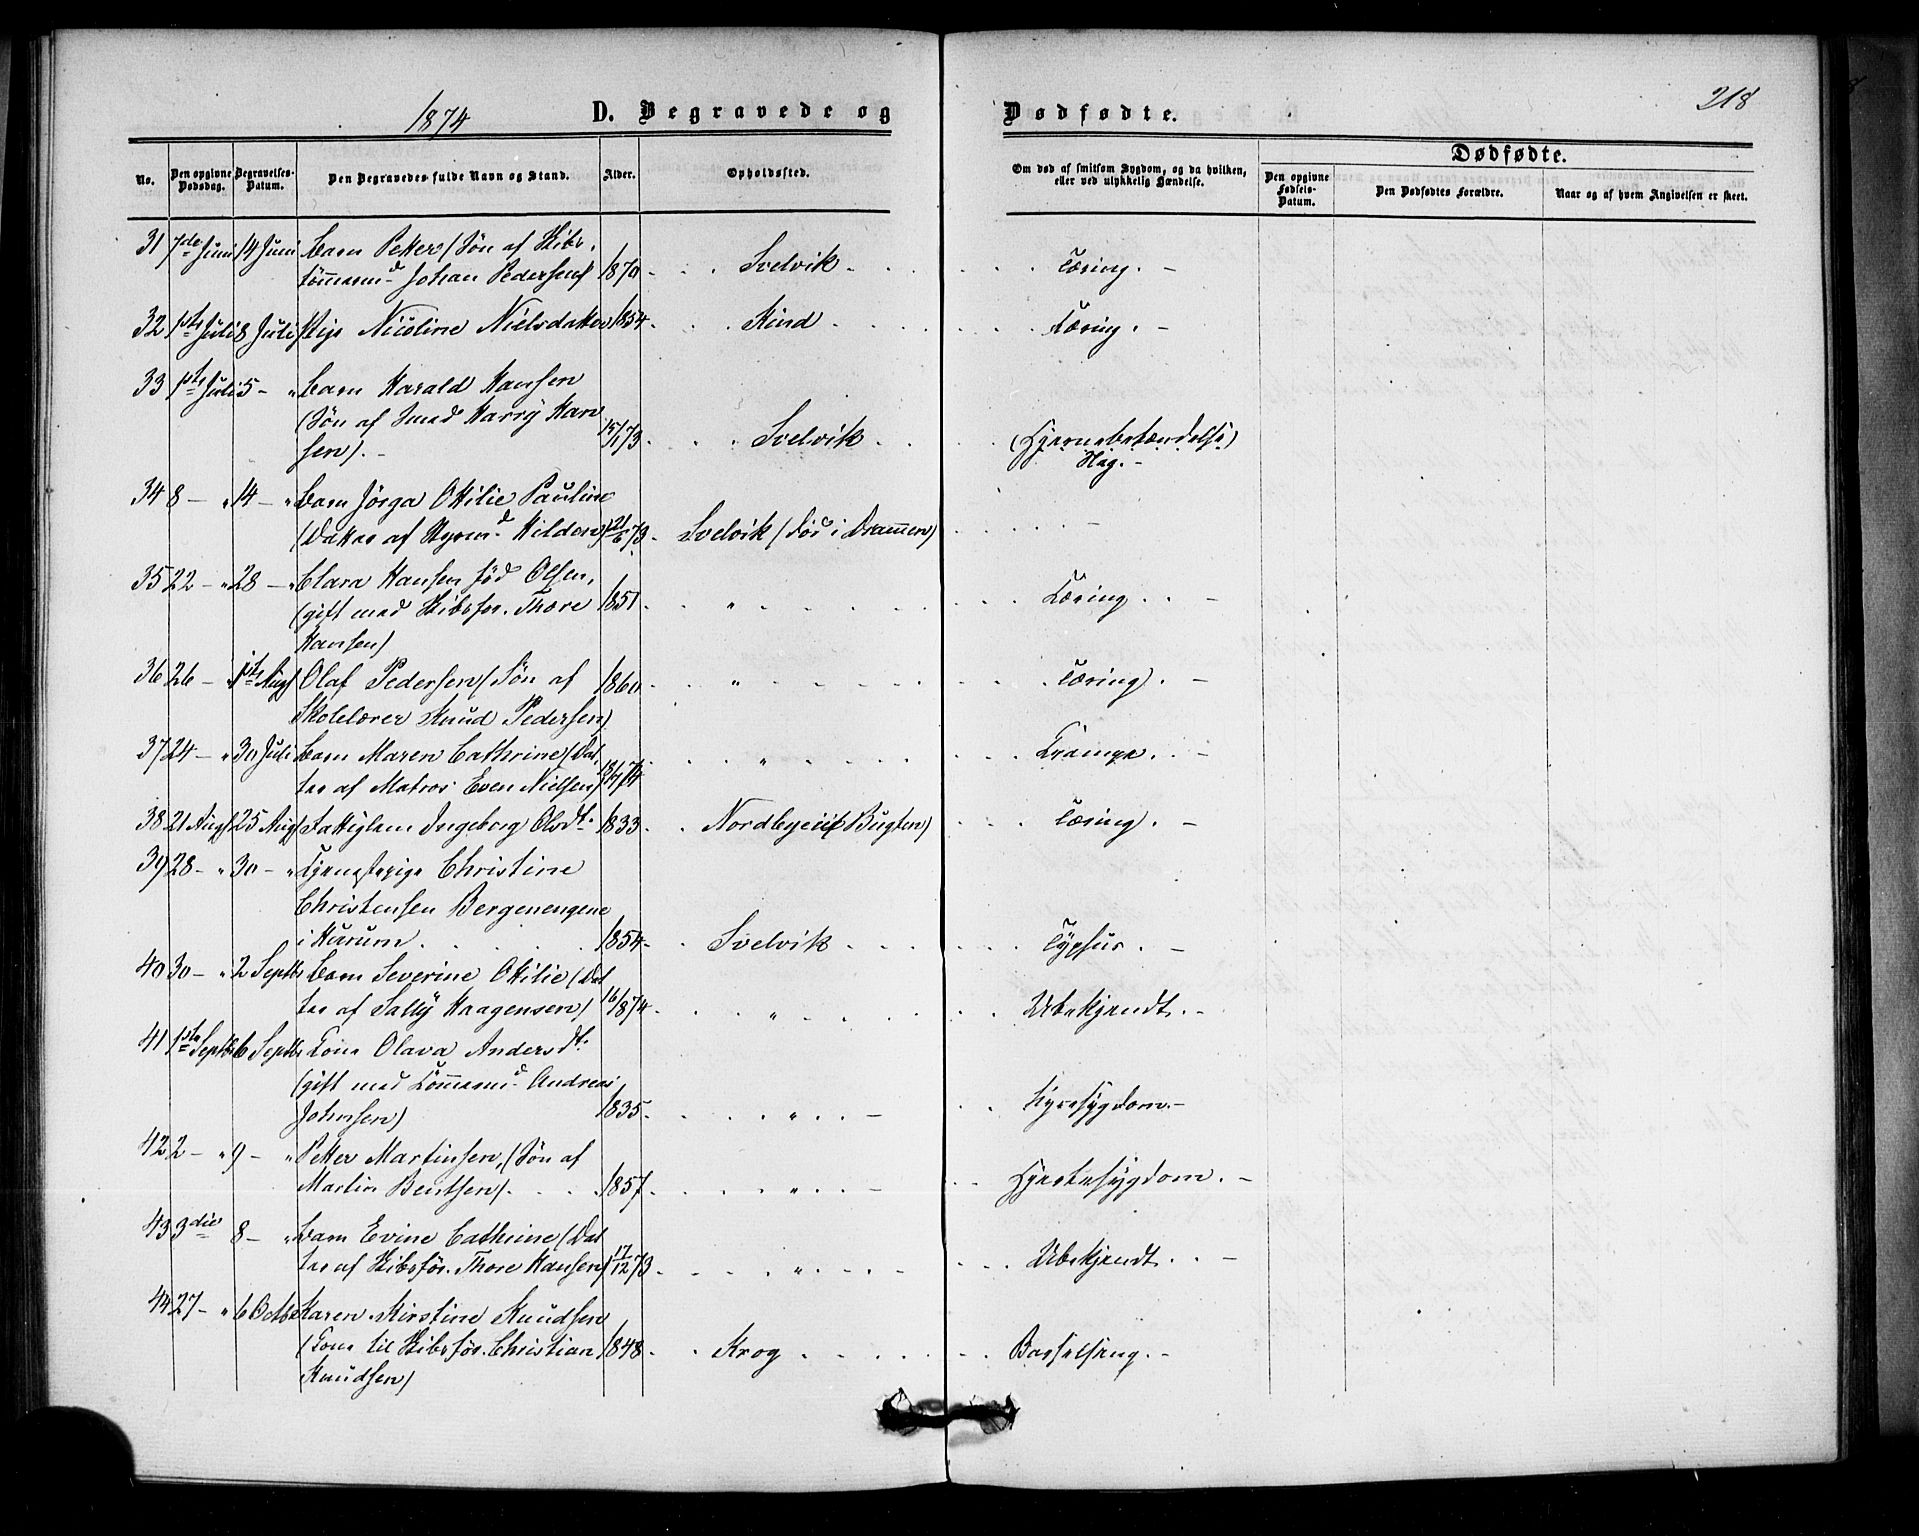 218
1874 D. Begravede og Dødfødte.
No.
Den opgivne Dødsdag.
Begravelses-Datum.
Den Begravedes fulde Navn og Stand.
Alder.
Opholdssted.
Om død af smitsom Sygdom, og da hvilken, eller ved ulykkelig Hændelse.
Dødfødte.
Den opgivne Fødsels-Datum.
Den Dødfødtes Forældre.
Naar og af hvem Angivelsen er skeet.
31 7de Juni 14 Juni Barn Petter (Søn af Skibs-
tømmermd Johan Pedersen) 1870 - Svelvik - Tæring. -
32 1ste Juli 8 Juli Pige Nicoline Nielsdatter 1854 - Rind - Tæring. -
33 1ste Juli 5 - " Barn Harald Hansen
(Søn af Smed Harry Han
sen). - 73 - Svelvik - (Hjernebetændelse)
34 8 - " 14 - " Barn Jörga Ottilie Pauline
(Datter af Styrmd Hilden) 21/6 73 - Svelvik (död i Drammen) -
35 22 - " 28 - " Clara Hansen född Olsen,
(gift med Skibsför. Thore 1851 - " - Tæring. -
Hansen)
36 26 - " 1ste Aug Olaf Pedersen (Søn af 1860 - " - Tæring. -
Skolelærer Knud Pedersen)
37 24 - " 30 Juli Barn Maren Cathrine (Dat
ter af Matros Even Nielsen) 74 - " - Krampe. -
38 21 Aug 25 Aug Fattiglem Ingeborg Olsdt. 1833 - Nordbyeie (Bugten) - Tæring. -
39 28 - " 30 - " Tjenestepige Christine
Christensen Bergenengene
i Hurum. 1854 - Svelvik - Typhus. -
40 30 - " 2 Septbr Barn Severine Ottilie (Dat
ter af Sally Haagensen) 16/8 74 - " - Ubekjendt. -
41 1ste Septbr 6 Septbr Kone Olava Andersdt.
(gift med Tömmermd Andreas
Johnsen) 1835 - " - Nyresygdom. -
42 2 - " 9 - " Petter Martinsen, (Søn af
Martin Bentsen). 1857 - " - Hjertesygdom. -
43 3die 8 - " Barn Evine Cathrine (Dat
ter af Skibsför. Thore Hansen) 17/12 73 - " - Ubekjendt. -
44 27 - " 6 Octbr Karen Kirstine Knudsen
(Kone til Skibsför. Christian 1848 - Krog - Barselseng. -
Knudsen)